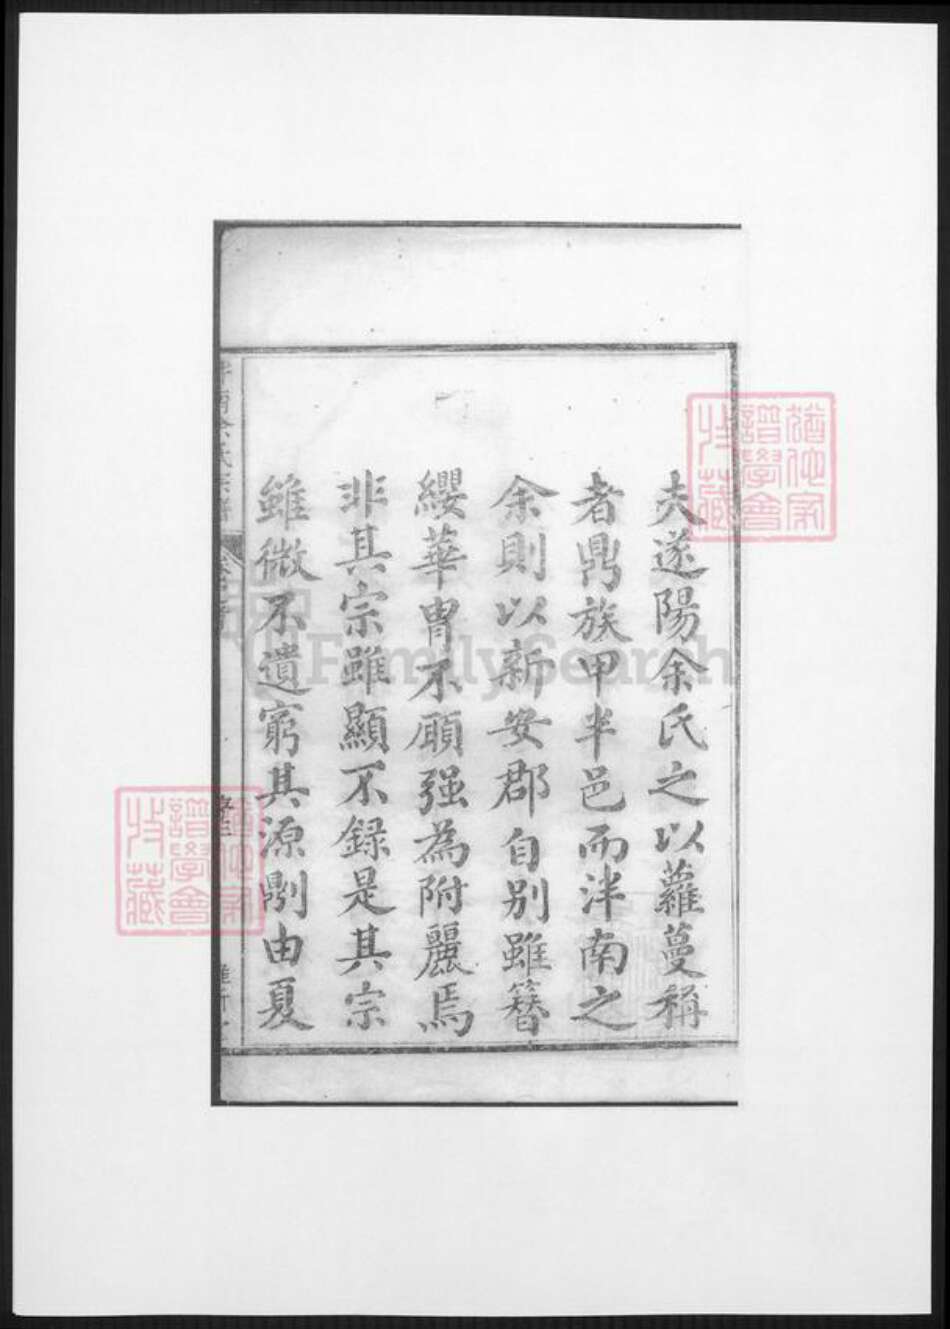 夫遂陽余氏之以蘿蔓稱
者鼎族甲半邑而泮南之
余則以新安郡自別雖簪
纓華胄不願强為附麗焉
非其宗雖顯不録是其宗
雖微不遺窮其源剮由夏
余氏宗譜
猶他家譜學會收藏
猶他家譜學會收藏
FamilySearch